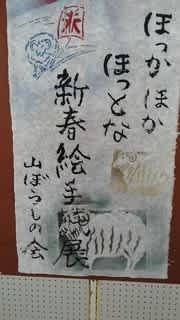 ほっかほか
ほっとな
新春絵手紙展
山ぼうしの会